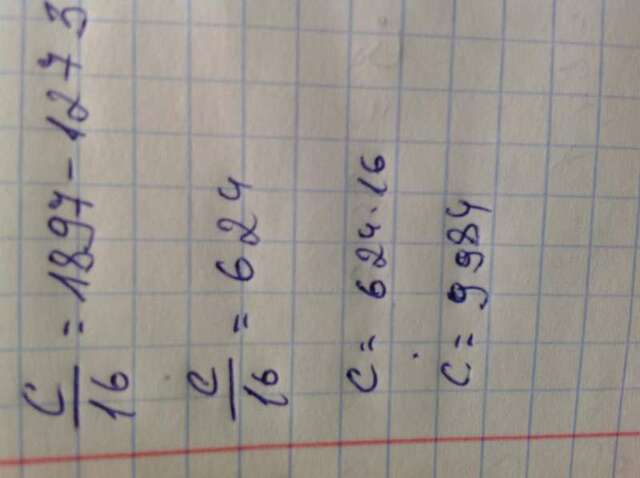 c/16 = 1897 - 1273
c/16 = 624
c = 624 · 16
c = 9984